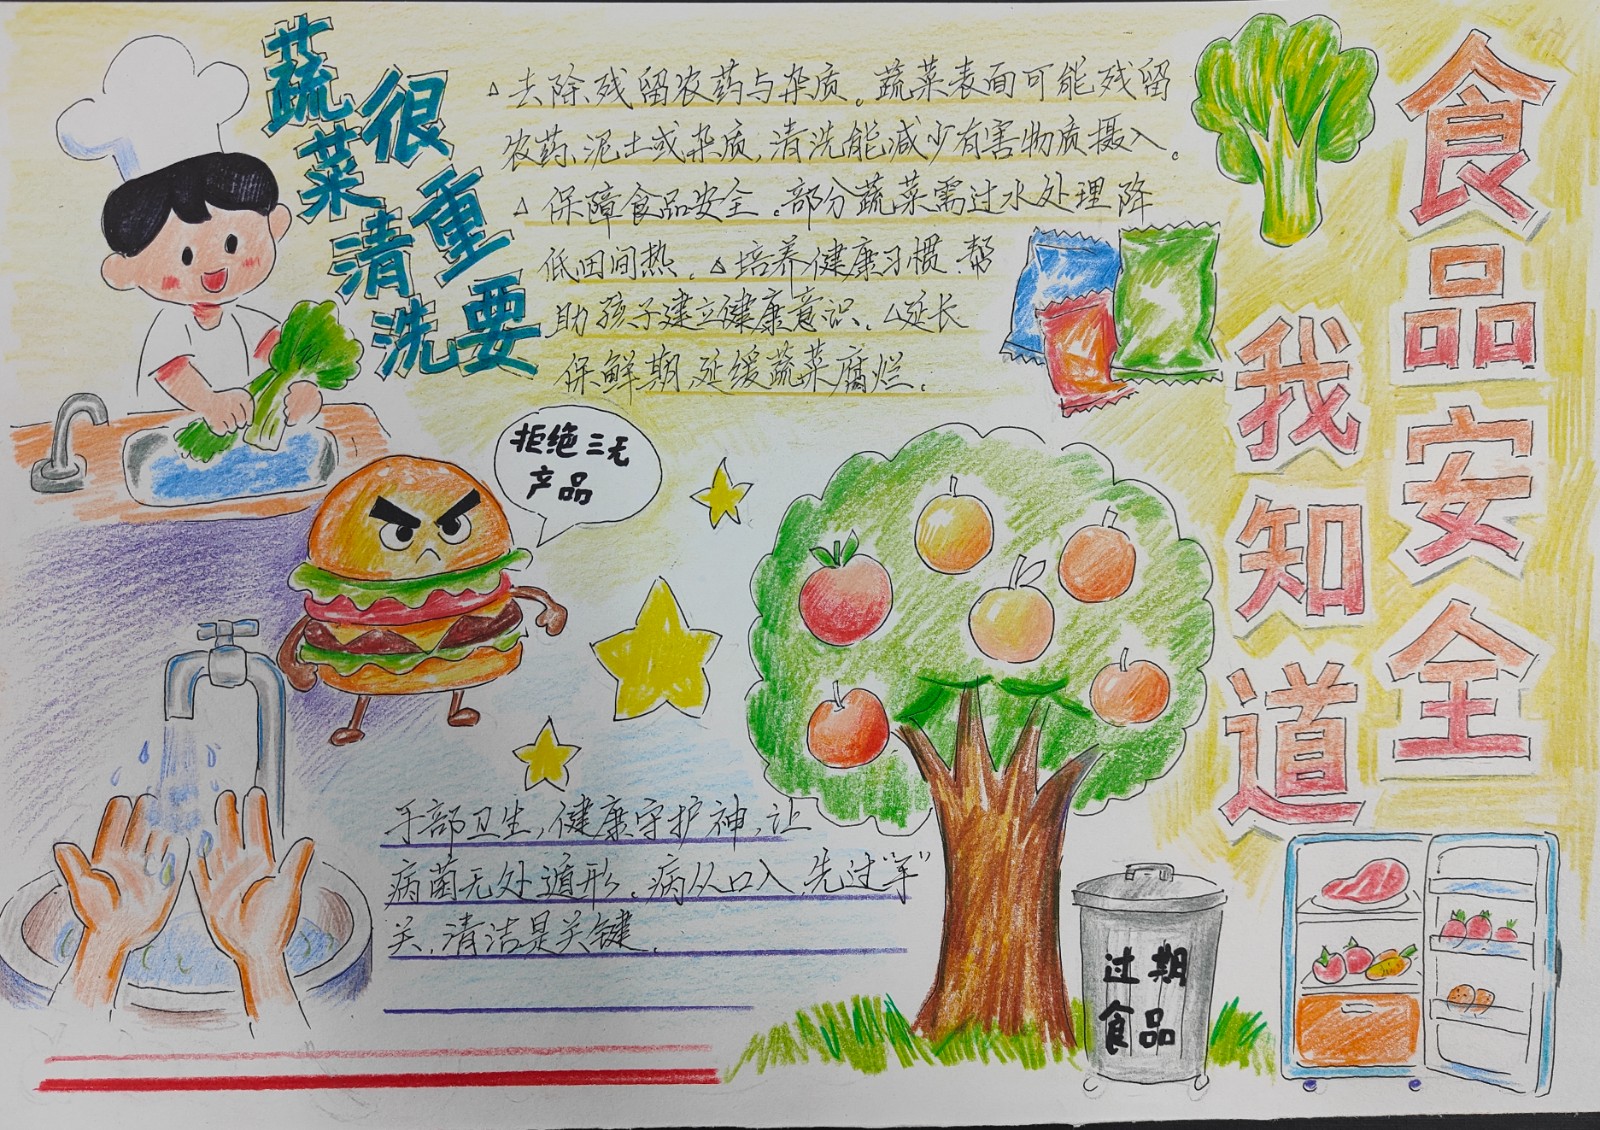 食品安全
我知道
蔬菜清洗
很重要
▵去除残留农药与杂质。蔬菜表面可能残留
农药、泥土或杂质,清洗能减少有害物质摄入。
▵保障食品安全。部分蔬菜需过水处理降
低田间热。▵培养健康习惯.帮
助孩子建立健康意识。▵延长
保鲜期 延缓蔬菜腐烂.
拒绝三无
产品
手部卫生,健康守护神,让
病菌无处遁形。病从口入,先过"手"
关,清洁是关键.
过期
食品